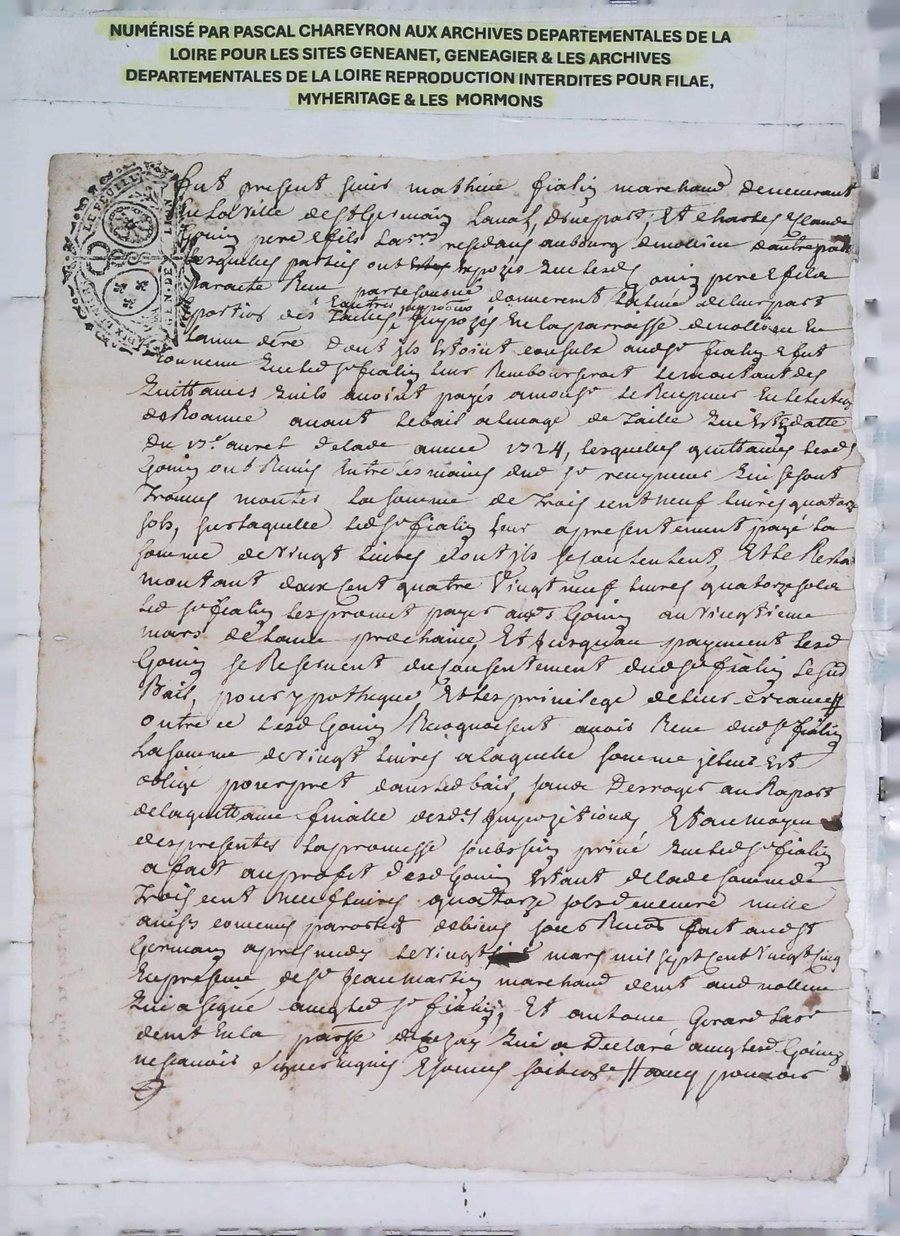 NUMÉRISÉ PAR PASCAL CHAREYRON AUX ARCHIVES DEPARTEMENTALES DE LA
LOIRE POUR LES SITES GENEANET, GENEAGIER & LES ARCHIVES
DEPARTEMENTALES DE LA LOIRE REPRODUCTION INTERDITES POUR FILAE,
MYHERITAGE & LES MORMONS
fut present sieur mathieu fialin marchand demeurant
En La Ville de St Germain Laval, dune part, Et charles & Claude
Gouin pere & fils Labrs residans au bourg de dautre part
Lesquelles parties ont Gouin pere & fils
donneront de leur part
En la parroisse de En
Lanné dont ils Estoint consuls aud sr fialin & fut
convenu que led sr fialin leur Rembourseroit le montant des
quittances quils avoint payés a monsr le Receveur En
de Roanne avant le bail a levage de Taille qui Est datte
du avril de lad année 1724, lesquelles quittances lesd
Gouin ont Remis Entre les mains dud sr qui se sont
Trouvés monter la somme de Trois cent neuf livres quatorze
sols, sur laquelle led sr fialin leur a presentement payé la
somme de vingt livres dont ils se contentent, Et le Restant
montant deux cent quatre Vingt neuf livres quatorze sols
Led sr fialin les promet payer auxd Gouin au vingtieme
mars de Lanné prochaine, Et jusquau payement Lesd
Gouin se Reservent du consentement dud sr fialin Le sud
Bail, pour ypotheque, Et les privilege de leur créance
outre ce Lesd Gouin Recognoisent avoir Receu dud sr fialin
La somme de vingt Livres a laquelle somme il leur Est
oblige pour pret dans led bail, sans Derroger au Raport
de la quittance finalle desd Impozitions, Et au moyen
des presentes La promesse soubs sein privé que led sr fialin
a fait au profit desd Gouin Estant de lad somme de
Trois cent neuf livres quatorze sols demeure nulle
ainsy convenus de biens fait aud st
Germain apres midy Le vingt mars mil sept cent vingt cinq
En presence de sr Jean martin marchand demt aud
qui a signé avec led sr fialin, Et antoine Gerard Labr
demt En la parsse de qui a Declaré avec Lesd Gouin
ne scavoir signer Enquis & sommés